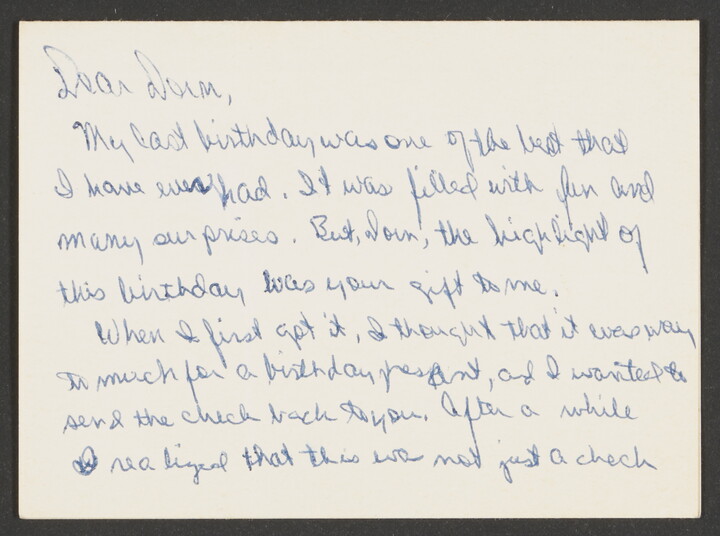 Dear Dorn,
My last birthday was one of the best that
I have ever had. It was filled with fun and
many surprises. But, Dorn, the highlight of
this birthday was your gift to me.
When I first got it, I thought that it was way
to much for a birthday present, and I wanted to
send the check back to you. After a while
I realized that this was not just a check